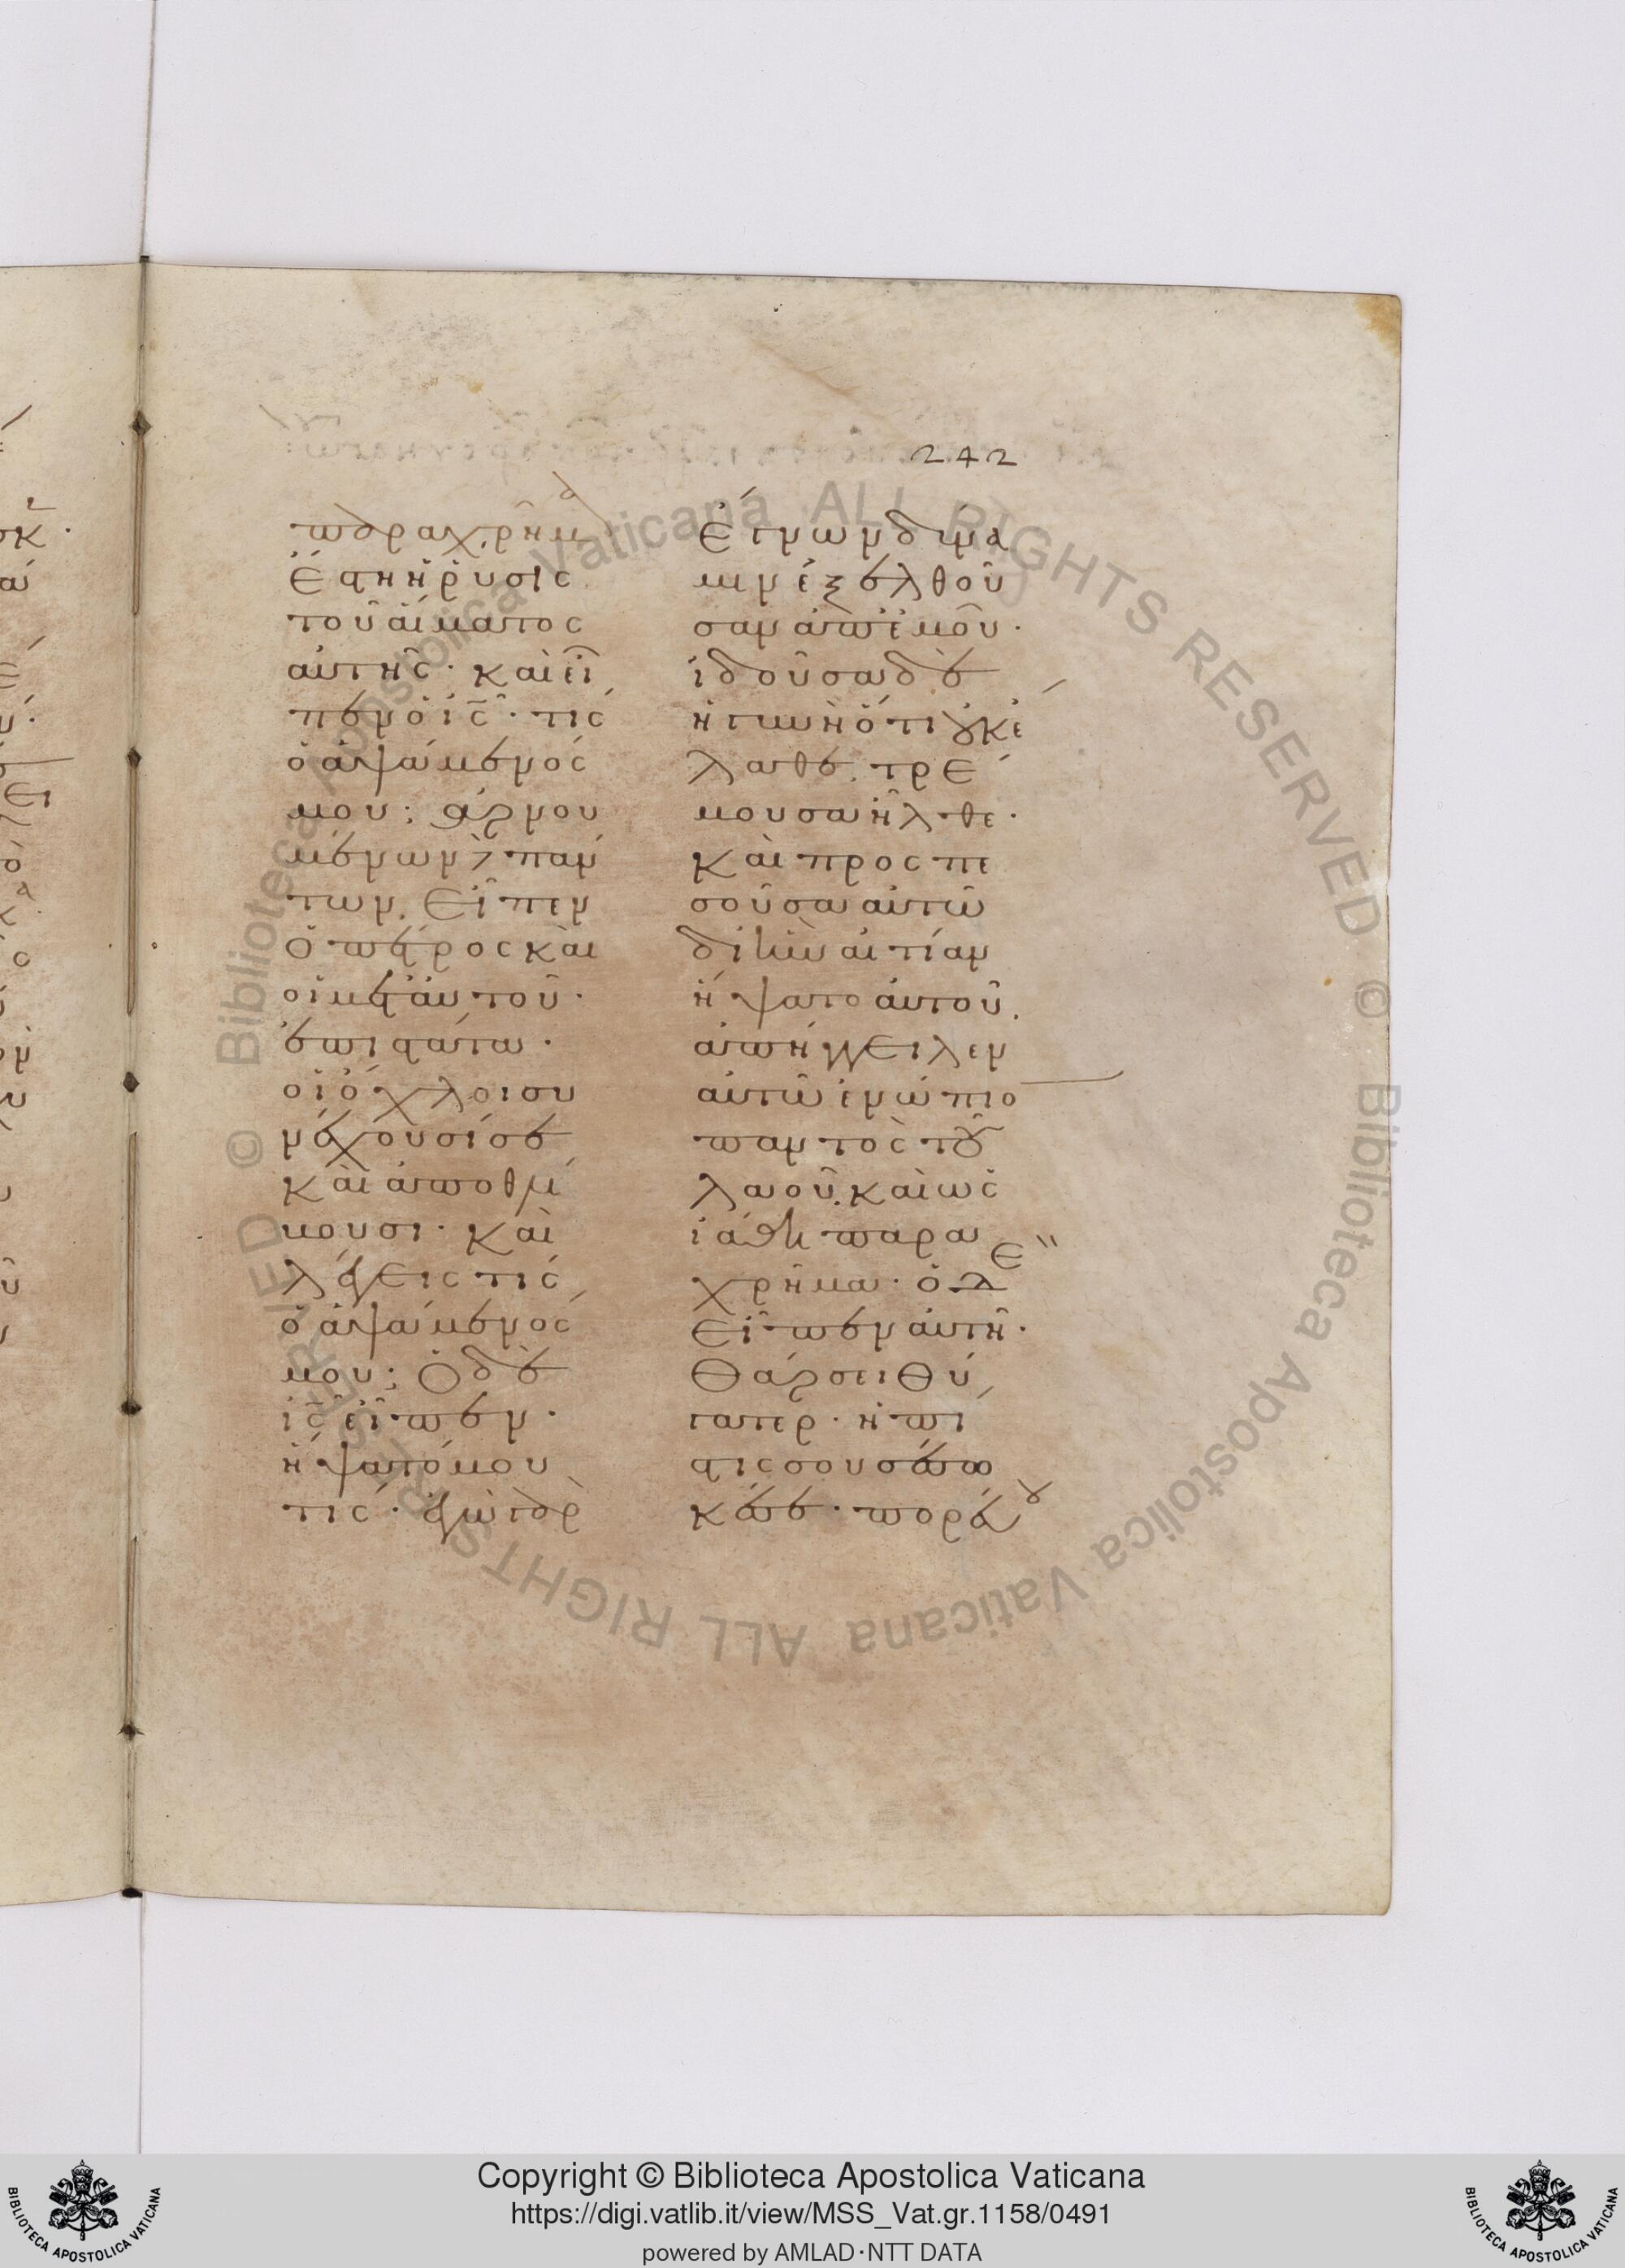 242
παραχρῆμα
ἔστη ἡ ῥύσις
τοῦ αἵματος
αὐτῆς· καὶ εἶ
πεν ὁ ις̅· τίς
ὁ ἁψάμενός
μου; ἀρνου
μένων δὲ πάν
των. εἶπεν
ὁ πέτρος καὶ
οἱ μετ' αὐτοῦ·
ἐπιστάτα·
οἱ ὄχλοι συ
νέχουσί σε
καὶ ἀποθλί
βουσι· καὶ
λέγεις τίς
ὁ ἁψάμενός
μου; Ὁ δὲ
ις̅ εἶπεν·
ἥψατό μου
τις· ἐγὼ γὰρ
ἔγνων δύνα
μιν ἐξελθοῦ
σαν ἀπ' ἐμοῦ·
ἰδοῦσα δὲ
ἡ γυνὴ ὅτι οὐκ ἔ
λαθε. τρέ
μουσα ἦλθε·
καὶ προσπε
σοῦσα αὐτῶ
δι' ἣν αἰτίαν
ἥψατο αὐτοῦ.
ἀπήγγειλεν
αὐτῶ ἐνώπιο
παντὸς τοῦ
λαοῦ. καὶ ὡς
ἰάθη παρα
χρῆμα· ὁ δὲ
εἶπεν αὐτῆ·
Θάρσει θύ
γατερ· ἡ πί
στις σου σέσω
κέ σε· πορεύου
Copyright © Biblioteca Apostolica Vaticana
https://digi.vatlib.it/view/MSS_Vat.gr.1158/0491
powered by AMLAD·NTT DATA
BIBLIOTECA APOSTOLICA VATICANA
BIBLIOTECA APOSTOLICA VATICANA
© Biblioteca Apostolica Vaticana ALL RIGHTS RESERVED © Biblioteca Apostolica Vaticana ALL RIGHTS RESERVED